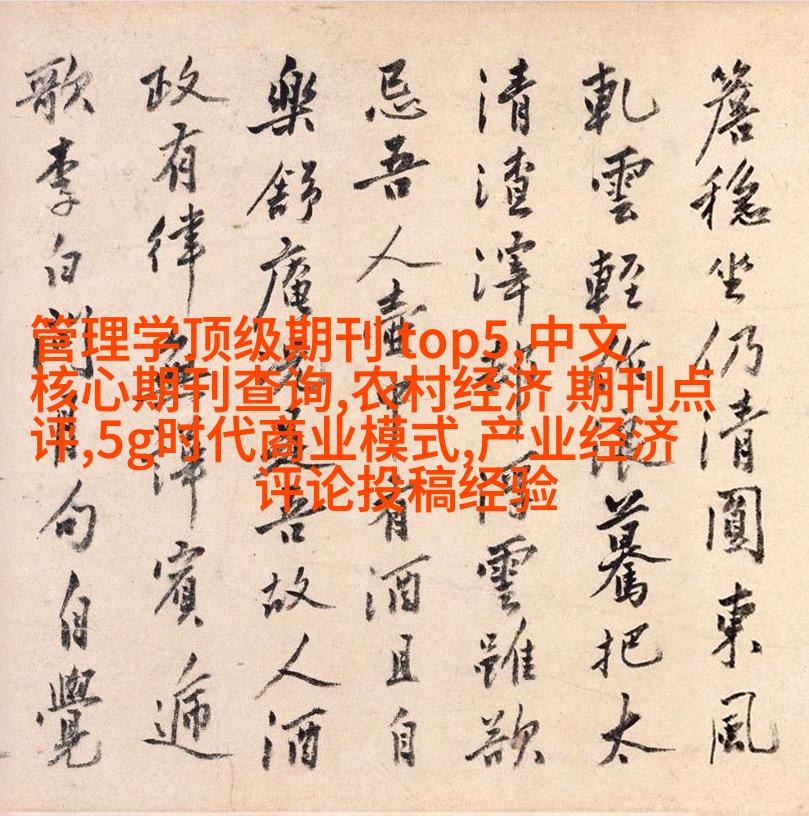 管理学顶级期刊 top5,中文
核心期刊查询,农村经济 期刊点
评,5g时代商业模式,产业经济
评论投稿经验
簷穩坐仍清圓東風
軋雲輕驀把太
清渣滓雲雖欲
忌吾人壺中有酒且自
樂舒庵吾故人酒
政有律律賓遞
歌李白句自覺